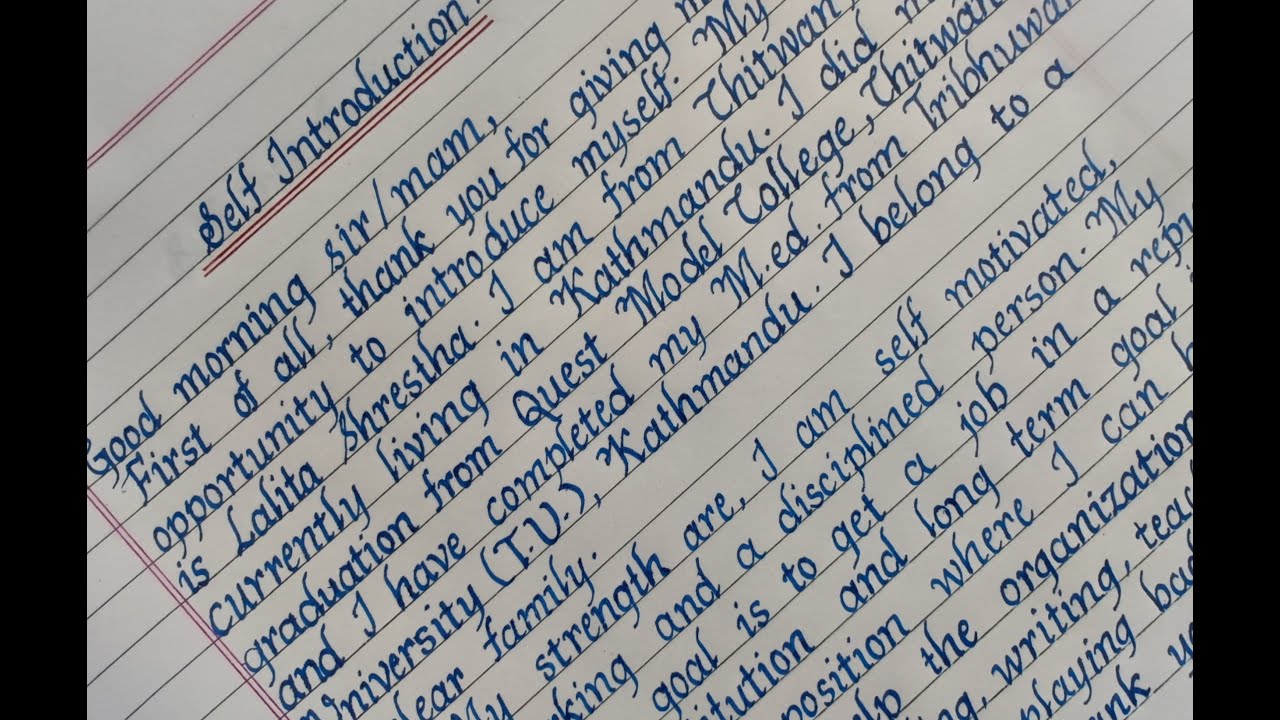 Self Introduction
Good morning sir/mam,
First of all, thank you for giving
opportunity to introduce myself. My
is Lalita Shrestha. I am from Chitwan,
currently living in Kathmandu. I did
graduation from Quest Model College, Chitwan
and I have completed my M.ed. from Tribhuwan
University (T.U.), Kathmandu. I belong to a
family.
My strength are, I am self motivated,
and a disciplined person. My
goal is to get a job in a
and long term goal
position where I can
the organization
writing,
playing